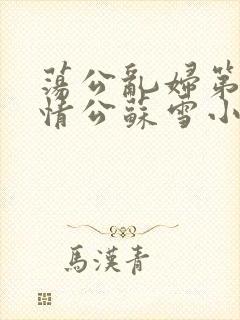 蕩公亂婦第
情公蘇雪小
馬漢青